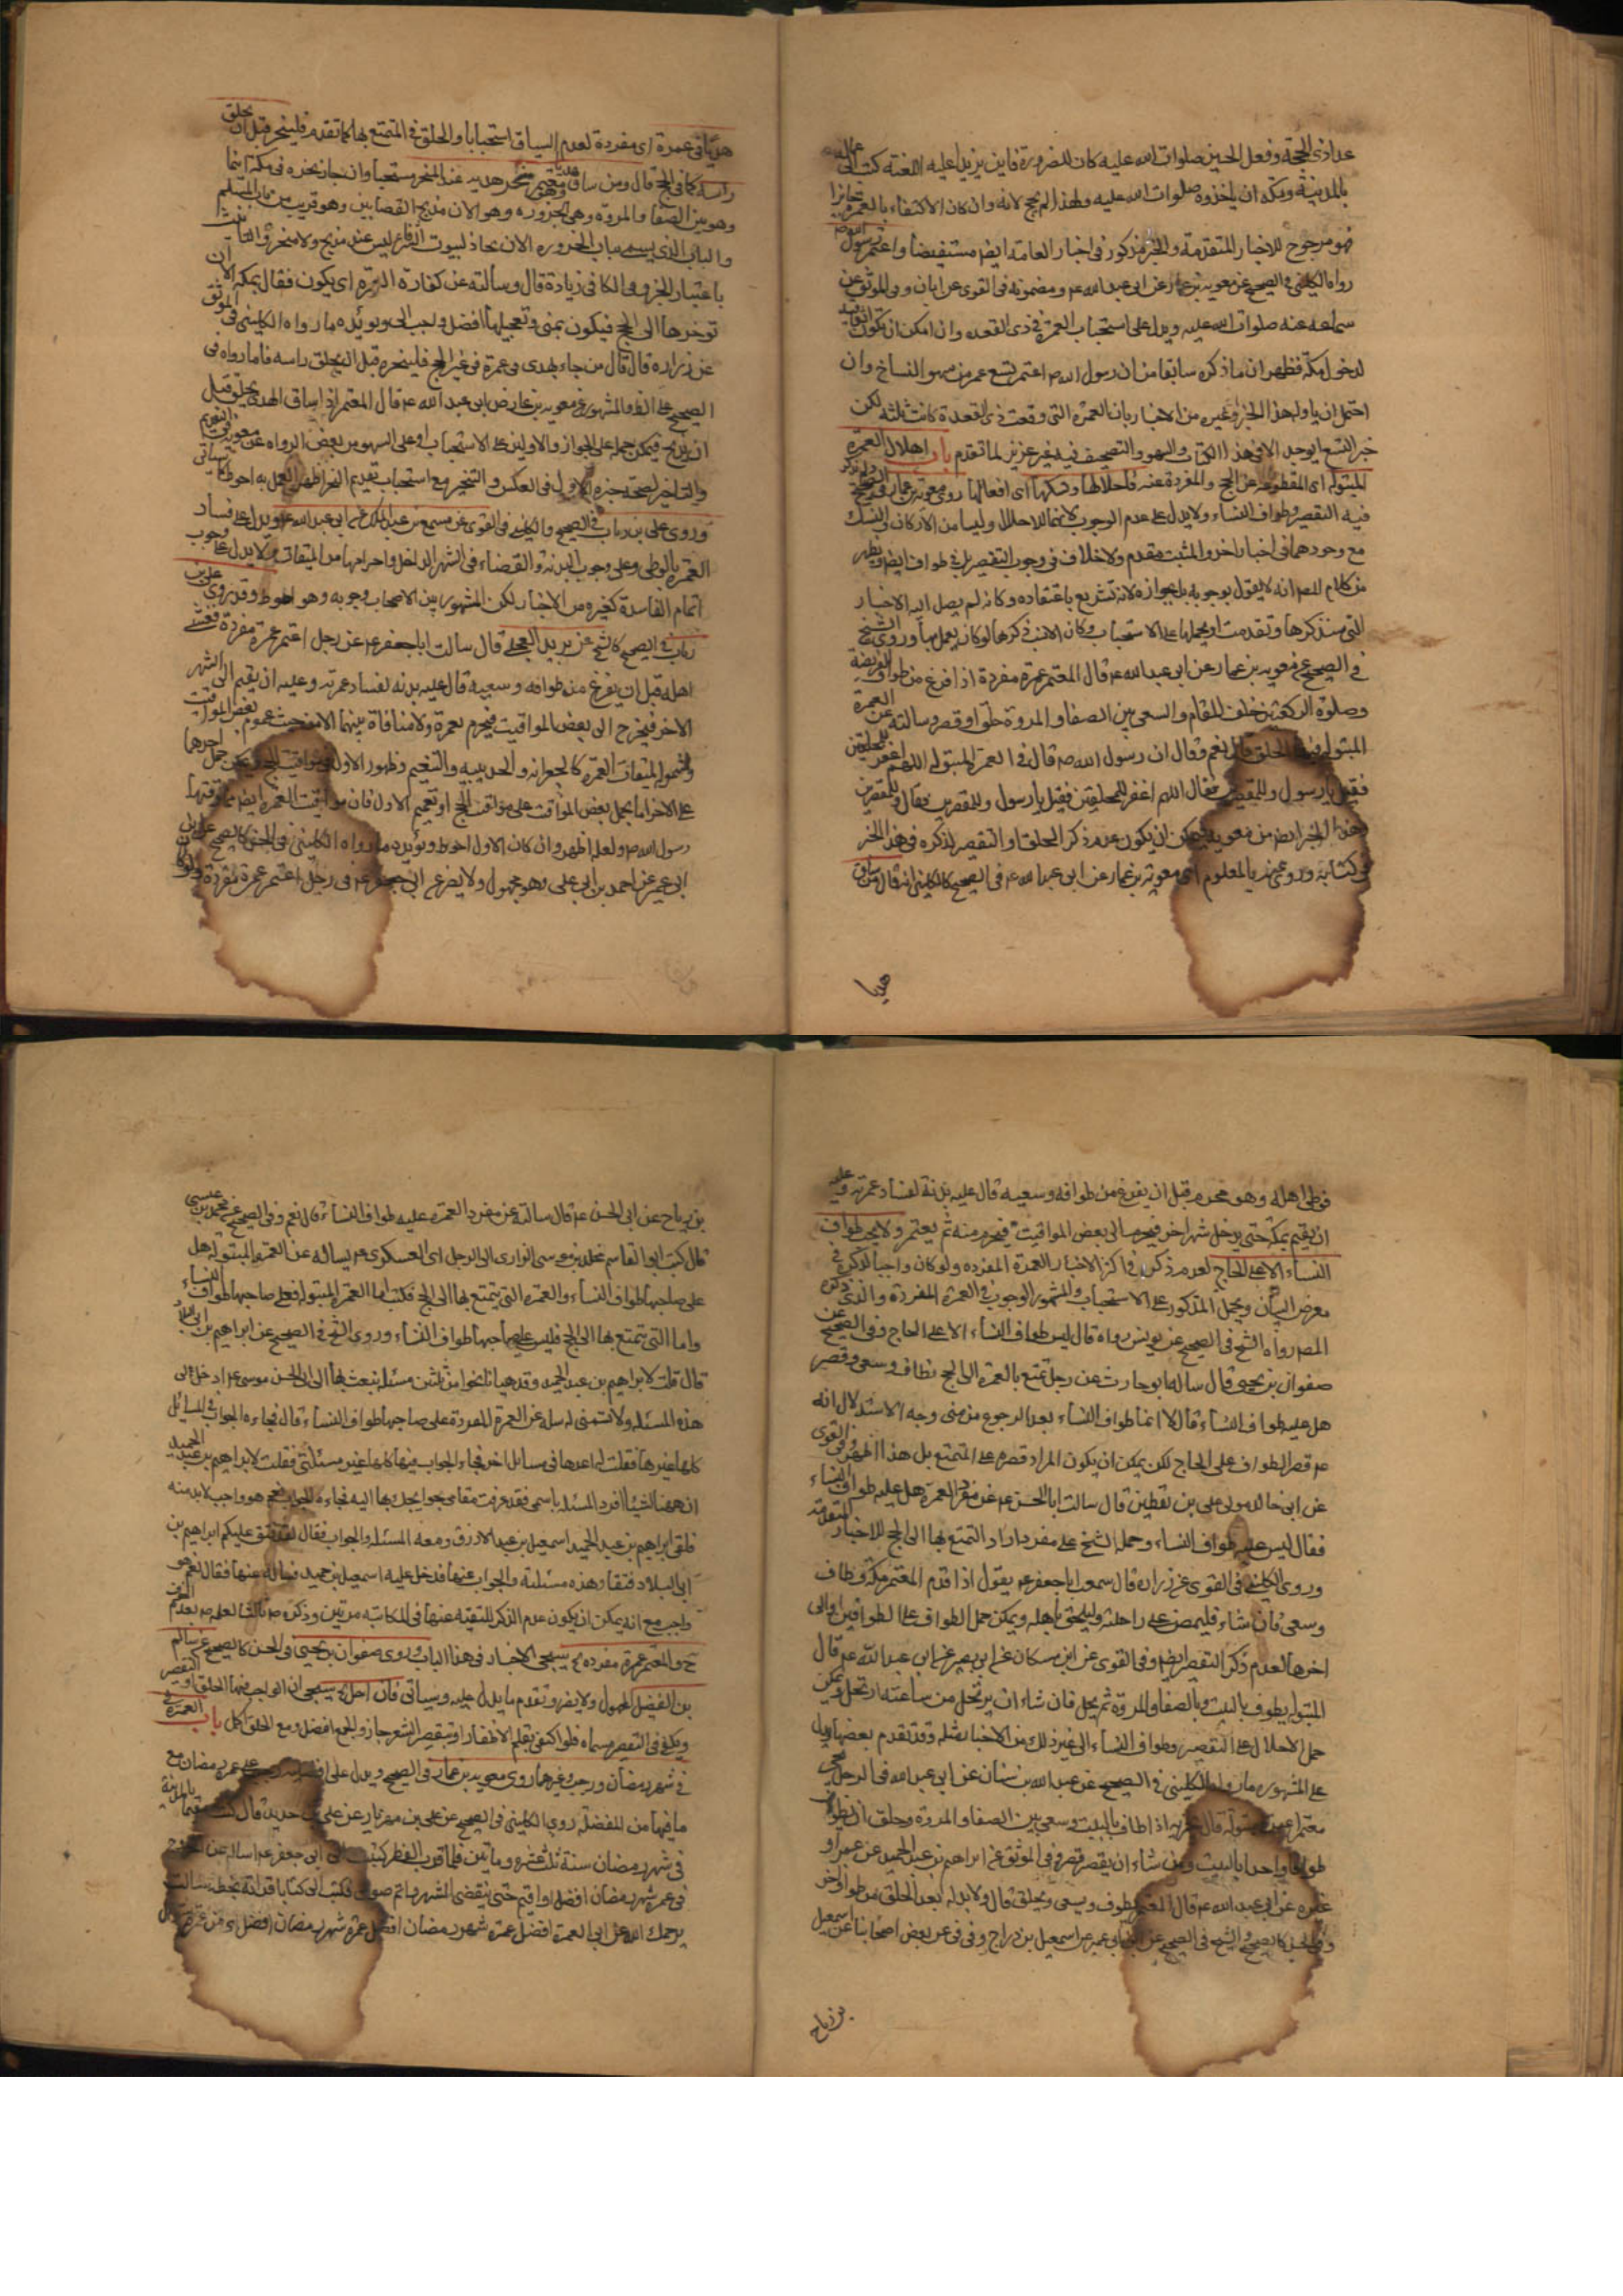 عدا ذي الحجة وفعل الحسين صلوات الله عليه كان للضرورة فاين يزيد لعنه عليه اللعنة كتب الى عماله
بالمدينة ومكة ان ياخذوه صلوات الله عليه ولهذا لم يحج لانه وان كان الاكتفاء بالعمرة جايزا
فهو مرجوح للاخبار المتقدمة والخبر مذكور في اخبار العامة ايضا مستفيضا واعتمر رسول الله ص
رواه الكليني في الصحيح عن معوية بن عمار عن ابى عبد الله ع ومضمونه في القوى عن ابان وفي الموثق عن
سماعه عنه صلوات الله عليه ويدل على استحباب العمرة في ذي القعده وان امكن ان يكون
لدخول مكة فظهر ان ما ذكره سابقا من ان رسول الله ص اعتمر تسع عمر من سهو النساخ وان
احتمل ان ياول هذا الخبر وغيره من الاخبار بان العمرة التي وقعت في ذي القعدة كانت ثلثه لكن
خبر التسع لا يوجد الا في هذا الكتاب والسهو والتصحيف فيه غير عزيز لما تقدم باب اهلال العمرة
المبتولة اى المقطوعة عن الحج والمفردة عنه واحلالها ونسكها اى افعالها روى معوية بن عمار في الصحيح
فيه التقصير وطواف النساء ولا يدل على عدم الوجوب لانهما للاحلال وليسا من الاركان في النسك
مع وجودهما في اخبار اخر والمثبت مقدم ولا خلاف في وجوب التقصير بل في طواف ايضا ويظهر
من كلام المص انه لا يقول بوجوبه بل بجوازه لانه تشريع باعتقاده وكانه لم يصل اليه الاخبار
التي سنذكرها وتقدمت او يحملها على الاستحباب وكان الانسب ذكرها لو كان يعمل بها وروى الشيخ
في الصحيح عن معوية بن عمار عن ابى عبد الله ع قال المعتمر عمرة مفردة اذا فرغ من طواف الفريضة
وصلوة الركعتين خلف المقام والسعى بين الصفا والمروة حلق او قصر وسالته عن العمرة
المبتولة فيها الحلق قال نعم وقال ان رسول الله ص قال في العمرة المبتولة اللهم اغفر للمحلقين
فقيل يا رسول وللمقصرين فقال اللهم اغفر للمحلقين فقيل يا رسول وللمقصرين فقال وللمقصرين
وهذا الخبر ايضا من معوية فيمكن ان يكون عدم ذكر الحلق او التقصير لذكره في هذا الخبر
في كتابه وروى عنه بالمعلوم اى معوية بن عمار عن ابى عبد الله ع في الصحيح كالكليني انه قال من ساق
هديا
هديا في عمرة اى مفردة لعدم السياق استحبابا والحلق في المتمتع بها كما تقدم فلينحر قبل ان يحلق
راسه كما في الحج قال ومن ساق هديا وهو معتمر نحر هديه عند المنحر مستحبا وان جاز نحره في مكة اينما
وهو بين الصفا والمروة وهي الحزورة وهو الان مذبح القصابين وهو قريب من
والباب الذي يسمى بباب الحزوره الان يحاذ لبيوت ليس عنده مذبح ولا منحر والتانيث
باعتبار الخبر وفي الكافي زيادة قال وسالته عن كفارة المعتمر اى يكون فقال بمكة الا ان
توخرها الى الحج فيكون بمنى وتعجيلها افضل واحب الى ويؤيده ما رواه الكليني في الموثق
عن زراره قال قال من جاء بهدى في عمرة في غير الحج فلينحره قبل ان يحلق راسه فاما ما رواه في
الصحيح عن معوية بن عمار عن ابى عبد الله ع قال المعتمر اذا ساق الهدى يحلق قبل
ان يذبح فيمكن حمله على الجواز والاولين على الاستحباب او على السهو من بعض الرواه
وروى على بن رئاب في الصحيح والكليني في القوى عن مسمع بن عبد الملك عن ابى عبد الله ع ويدل على فساد
العمرة بالوطى وعلى وجوب البدنة والقضاء في الشهر الداخل واحرامها من الميقات ولا يدل على وجوب
اتمام الفاسدة كغيره من الاخبار لكن المشهور بين الاصحاب وجوبه وهو احوط وقد روى على بن
رئاب في الصحيح كالشيخ عن بريد العجلى قال سالت ابا جعفر ع عن رجل اعتمر عمرة مفردة فغشى
اهله قبل ان يفرغ من طوافه وسعيه قال عليه بدنه لفساد عمرته وعليه ان يقيم الى الشهر
الاخر فيخرج الى بعض المواقيت فيحرم بعمرة ولا منافاة بينهما الا من حيث عموم بعض المواقيت
وشموله لميقات العمرة كالجعرانه والحديبيه والتنعيم وظهور الاول في مواقيت الحج
على الاخر اما بحمل بعض المواقيت على مواقيت الحج او تعميم الاول فان مواقيت العمرة ايضا مما وقتها
رسول الله ص ولعله اظهر وان كان الاول احوط ويؤيده ما رواه الكليني في الحسن كالصحيح عن ابن
ابى عمير عن احمد بن ابى على وهو مجهول ولا يضر عن ابى جعفر ع في رجل اعتمر عمرة مفردة
فوطى اهله وهو محرم قبل ان يفرغ من طوافه وسعيه قال عليه بدنة لفساد عمرته وعليه
ان يقيم بمكة حتى يدخل شهر اخر فيخرج الى بعض المواقيت فيحرم منه ثم يعتمر ولا يجب طواف
النساء الا على الحاج لعدم ذكره في اكثر الاخبار العمرة المفرده ولو كان واجبا لذكره في
معرض البيان ويحمل المذكور على الاستحباب والمشهور الوجوب في العمرة المفردة والذى ذكره
المص رواه الشيخ في الصحيح عن يونس رواه قال ليس طواف النساء الا على الحاج وفي الصحيح عن
صفوان بن يحيى قال ساله ابو حارث عن رجل تمتع بالعمرة الى الحج فطاف وسعى وقصر
هل عليه طواف النساء قال لا انما طواف النساء بعد الرجوع من منى وجه الاستدلال انه
ع قصر الطواف على الحاج لكن يمكن ان يكون المراد قصره على المتمتع بل هذا اظهر وفي القوى
عن ابى خالد مولى على بن يقطين قال سالت ابا الحسن ع عن مفرد العمرة هل عليه طواف النساء
فقال ليس عليه طواف النساء وحمله الشيخ على مفرد اراد التمتع بها الى الحج للاخبار المتقدمة
وروى الكليني في القوى عن زراره قال سمعت ابا جعفر ع يقول اذا قدم المعتمر مكة وطاف
وسعى فان شاء فليمض على راحلته وليلحق باهله ويمكن حمل الطواف على الطوافين
اخرها لعدم ذكر التقصير ايضا وفي القوى عن ابن مسكان عن ابى بصير عن ابى عبد الله ع قال
المبتولة يطوف بالبيت وبالصفا والمروة ثم يحل فان شاء ان يرتحل من ساعته ارتحل ويمكن
حمل الاحلال على التقصير وطواف النساء الى غير ذلك من الاخبار مثله وقد تقدم بعضها ويدل
على المشهور ما رواه الكليني في الصحيح عن عبد الله بن سنان عن ابى عبد الله في الرجل يجئ
معتمرا عمرة مبتولة قال يجزيه اذا طاف بالبيت وسعى بين الصفا والمروة وحلق ان يطوف
طوافا واحدا بالبيت ومن شاء ان يقصر قصر وفي الموثق عن ابراهيم بن عبد الحميد عن عمر او
غيره عن ابى عبد الله ع قال المعتمر يطوف ويسعى ويحلق قال ولا بد له بعد الحلق من طواف اخر
وفي الحسن كالصحيح والشيخ في الصحيح عن ابن ابى عمير عن اسمعيل بن دراج وفي ق عن بعض اصحابنا عن اسمعيل
بن رياح
بن رياح عن ابى الحسن ع قال سالته عن مفرد العمرة عليه طواف النساء قال نعم وفي الصحيح عن محمد بن عيسى
قال كتب ابو القاسم مخلد بن موسى الرازى الى الرجل اى العسكرى ع يساله عن العمرة المبتولة هل
على صاحبها طواف النساء والعمرة التي يتمتع بها الى الحج فكتب اما العمرة المبتولة فعلى صاحبها طواف النساء
واما التي يتمتع بها الى الحج فليس على صاحبها طواف النساء وروى الشيخ في الصحيح عن ابراهيم بن ابى البلاد
قال قلت لابراهيم بن عبد الحميد وقد هيانا نحوا من ثلثين مسئلة نبعث بها الى ابى الحسن موسى ع ادخل لى
هذه المسئله ولا تسمنى له سله عن العمرة المفردة على صاحبها طواف النساء قال فجاءه الجواب في المسائل
كلها غيرها فقلت له اعدها في مسائل اخر فجاء الجواب فيها كلها غير مسئلتى فقلت لابراهيم بن عبد الحميد
ان ههنا لشيئا افرد المسئلة باسمى فقد عرفت مقامى بحوايجك فكتب بها اليه فجاءه الجواب نعم هو واجب لا بد منه
فلقى ابراهيم بن عبد الحميد اسمعيل بن حميد الازرق ومعه المسئله والجواب فقال لقد فتق عليكم ابراهيم بن
ابى البلاد فتقا وهذه مسئلته والجواب عنها فدخل عليه اسمعيل بن حميد فساله عنها فقال نعم هو
واجب مع انه يمكن ان يكون عدم الذكر للتقية عنها في المكاتبة مرتين وذكره ع ثالثا لعلمه بعدم الضرر
ح والمعتمر عمرة مفرده سيجئ الاخبار في هذا الباب وروى صفوان بن يحيى في الحسن كالصحيح عن سالم
بن الفضل المجهول ولا يضر وتقدم ما يدل عليه وسياتى فاذن احل سيجئ ان الواجب فيها الحلق او التقصير
ويكفى في التقصير مسماه فلو اكتفى بقلم الاظفار او بتقصير الشعر جاز والجمع افضل ومع الحلق اكمل باب العمرة
في شهر رمضان ورجب وغيرهما روى معوية بن عمار في الصحيح ويدل على افضلية رجب على عمرة رمضان مع
ما فيها من الفضلة روى الكليني في الصحيح عن على بن مهزيار عن على بن حديد قال كنت مقيما بالمدينة
في شهر رمضان سنة ثلث عشره وماتين فلما قرب الفطر كتبت الى ابى جعفر ع اساله عن الخروج
في عمرة شهر رمضان افضل او اقيم حتى ينقضى الشهر واتم صومى فكتب الى كتابا قراته بخطه سالت
يرحمك الله عن اى العمرة افضل عمرة شهر رمضان افضل عمرة شهر رمضان افضل